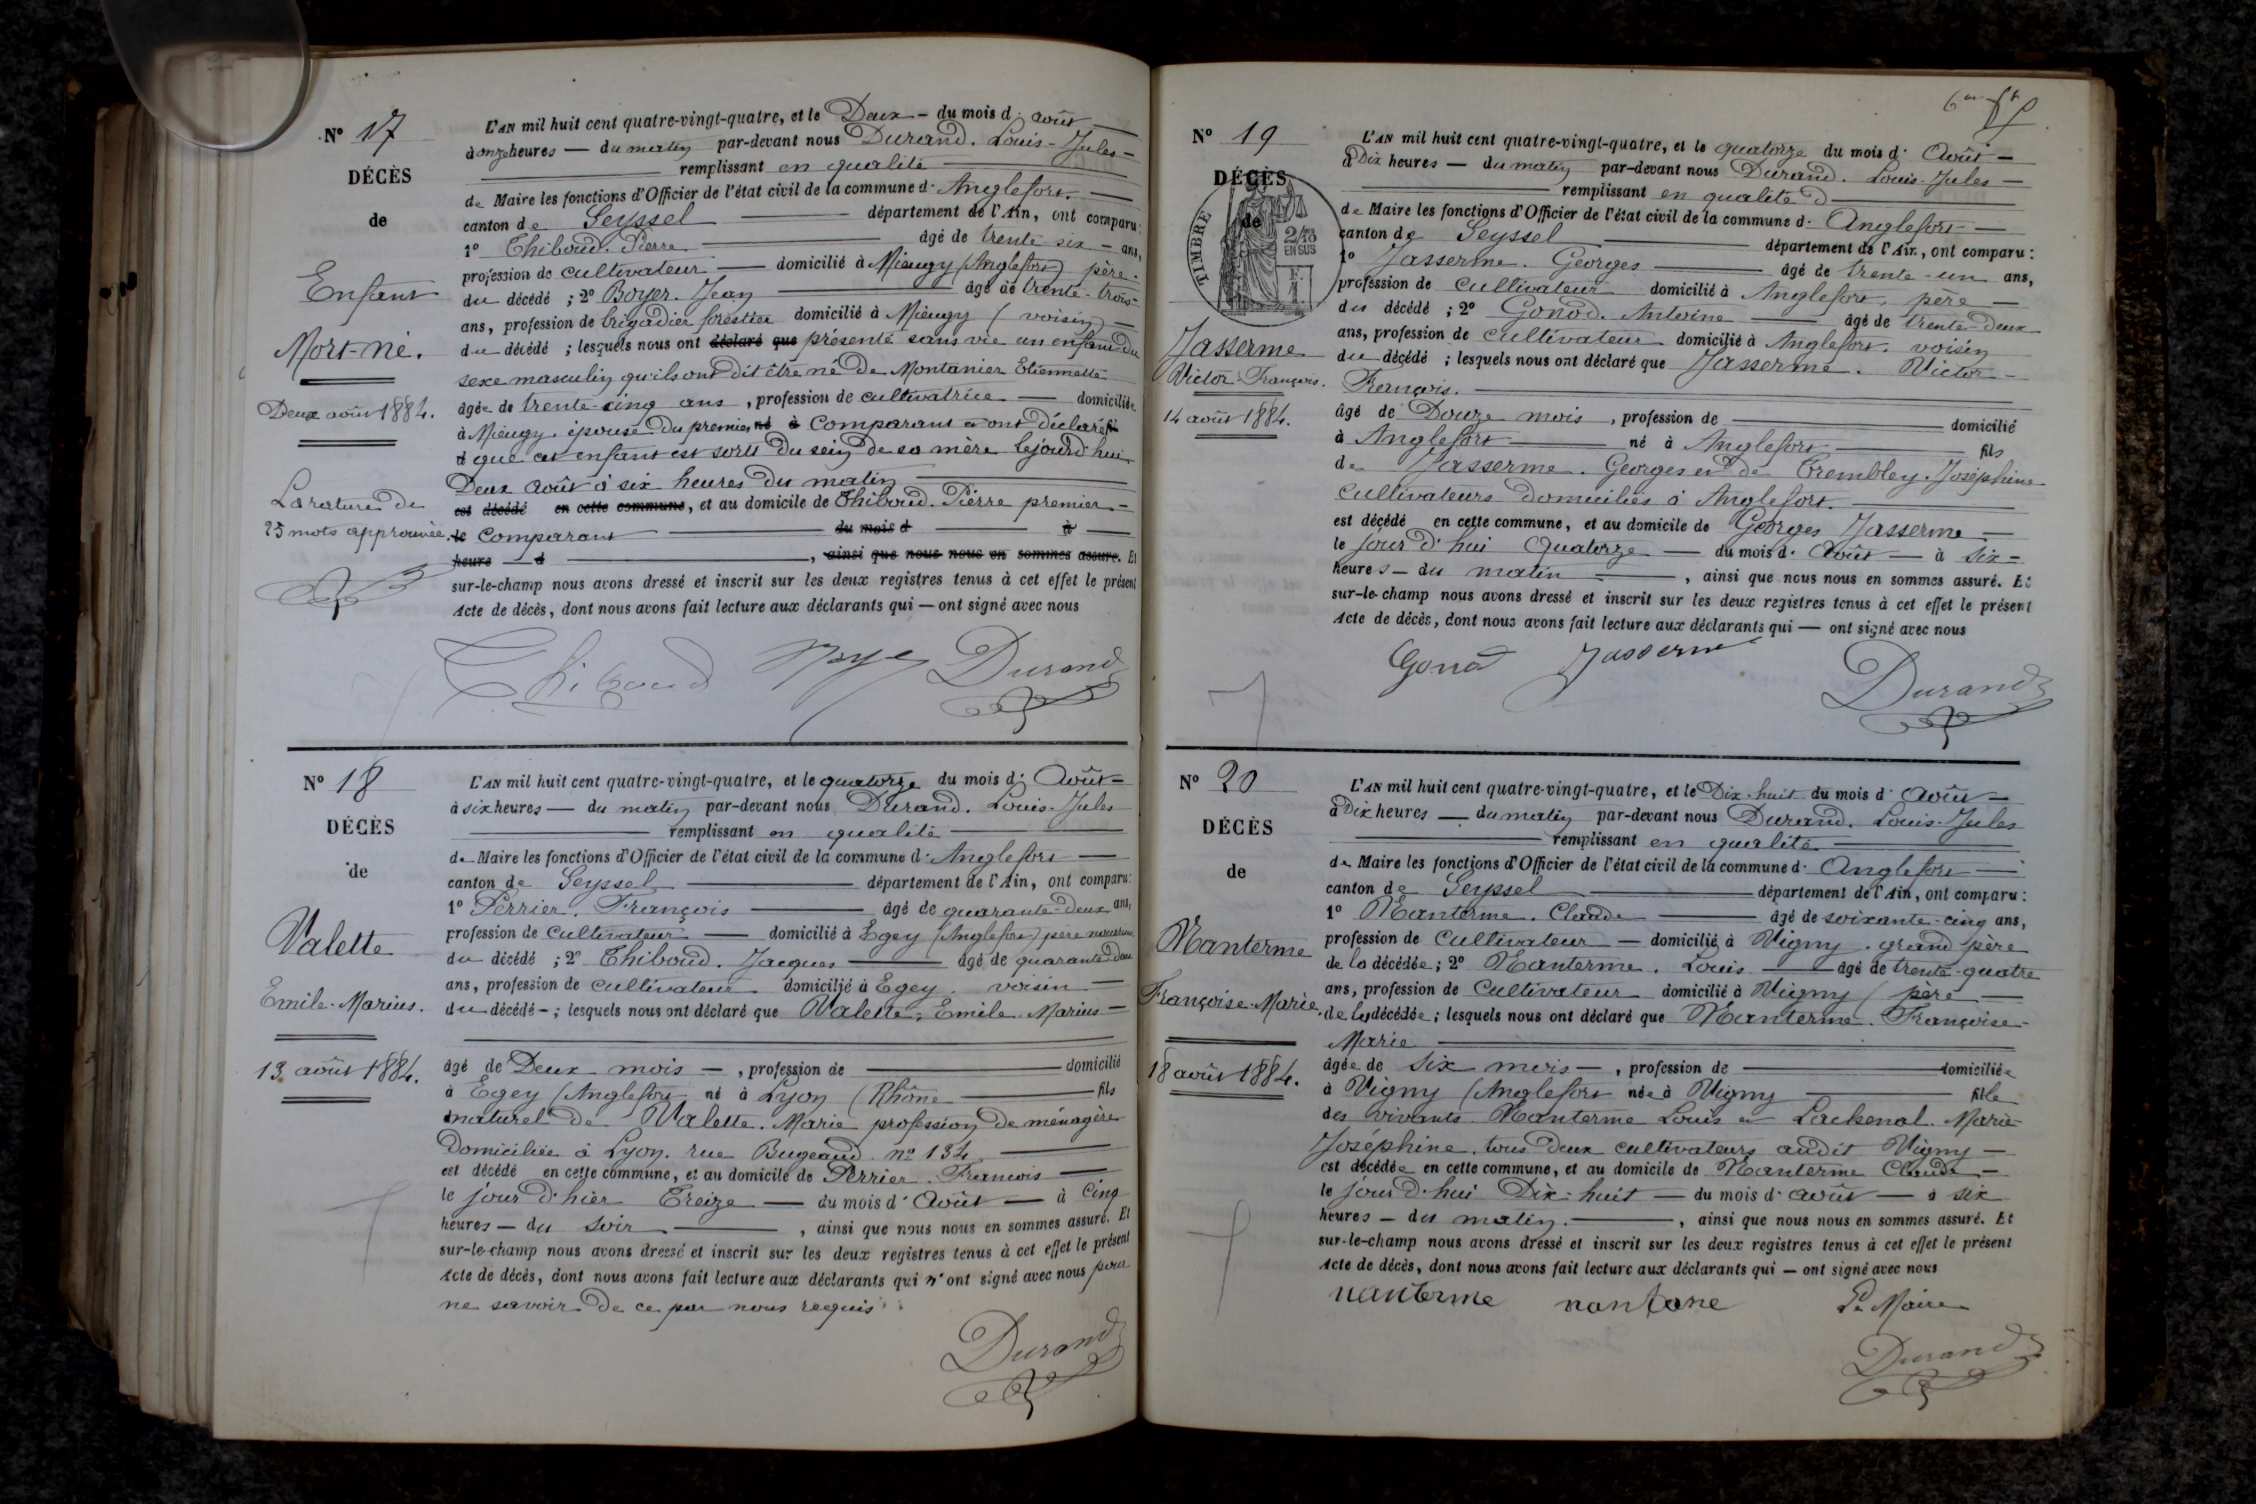 N° 17
DÉCÈS
de
Enfant
Mort-né.
Deux août 1884.
La rature de
25 mots approuvée.
L'AN mil huit cent quatre-vingt-quatre, et le Deux - du mois d' août
à onze heures — du matin par-devant nous Durand. Louis-Jules -
remplissant en qualité
de Maire les fonctions d'Officier de l'état civil de la commune d' Anglefort.
canton de Seyssel département de l'Ain, ont comparu:
1° Thiboud. Pierre âgé de trente six - ans,
profession de cultivateur — domicilié à Mieugy (Anglefort) père -
du décédé ; 2° Boyer. Jean âgé de trente-trois-
ans, profession de brigadier forestier domicilié à Mieugy (voisin)
du décédé ; lesquels nous ont déclaré que présenté sans vie un enfant du
sexe masculin qu'ils ont dit être né de Montanier Etiennette
âgée de trente-cinq ans, profession de cultivatrice — domiciliée
à Mieugy. épouse du premier né à Comparant et ont déclaré fi
d que cet enfant est sorti du sein de sa mère le jourd'hui
Deux août à six heures du matin
est décédé en cette commune, et au domicile de Thiboud. Pierre premier -
le Comparant du mois d à
heure d , ainsi que nous nous en sommes assuré. Et
sur-le-champ nous avons dressé et inscrit sur les deux registres tenus à cet effet le présent
Acte de décès, dont nous avons fait lecture aux déclarants qui — ont signé avec nous
Thiboud Durand
N° 18
DÉCÈS
de
Valette
Emile-Marius.
13 août 1884.
L'AN mil huit cent quatre-vingt-quatre, et le quatorze du mois d' Août -
à six heures — du matin par-devant nous Durand. Louis-Jules
remplissant en qualité
de Maire les fonctions d'Officier de l'état civil de la commune d' Anglefort
canton de Seyssel département de l'Ain, ont comparu:
1° Perrier. François âgé de quarante-deux ans,
profession de cultivateur — domicilié à Egey (Anglefort) père nourricier
du décédé ; 2° Thiboud. Jacques âgé de quarante deux
ans, profession de cultivateur domicilié à Egey. voisin
du décédé - ; lesquels nous ont déclaré que Valette, Emile-Marius -
âgé de Deux mois -, profession de domicilié
à Egey (Anglefort né à Lyon (Rhône fils
naturel de Valette. Marie profession de ménagère
Domiciliée à Lyon. rue Bugeaud n° 134
est décédé en cette commune, et au domicile de Perrier. François
le jour d'hier Treize — du mois d' Août — à Cinq
heures — du soir , ainsi que nous nous en sommes assuré. Et
sur-le-champ nous avons dressé et inscrit sur les deux registres tenus à cet effet le présent
Acte de décès, dont nous avons fait lecture aux déclarants qui n'ont signé avec nous pour
ne savoir de ce par nous requis
Durand
N° 19
DÉCÈS
de
TIMBRE
2/10
EN SUS
Jasserme
Victor-François.
14 août 1884.
L'AN mil huit cent quatre-vingt-quatre, et le quatorze du mois d' Août -
à Dix heures — du matin par-devant nous Durand. Louis-Jules —
remplissant en qualité d
de Maire les fonctions d'Officier de l'état civil de la commune d' Anglefort -
canton de Seyssel département de l'Ain, ont comparu:
1° Jasserme. Georges âgé de trente-un ans,
profession de cultivateur domicilié à Anglefort, père —
du décédé ; 2° Gonod. Antoine âgé de trente-deux
ans, profession de cultivateur domicilié à Anglefort. voisin
du décédé ; lesquels nous ont déclaré que Jasserme. Victor -
François.
âgé de Douze mois, profession de domicilié
à Anglefort né à Anglefort fils
de Jasserme. Georges et de Trembley. Joséphine
cultivateurs domiciliés à Anglefort.
est décédé en cette commune, et au domicile de Georges Jasserme -
le jour d'hui Quatorze — du mois d' Août — à six -
heures — du matin , ainsi que nous nous en sommes assuré. Et
sur-le-champ nous avons dressé et inscrit sur les deux registres tenus à cet effet le présent
Acte de décès, dont nous avons fait lecture aux déclarants qui — ont signé avec nous
Gonod Jasserme Durand
N° 20
DÉCÈS
de
Nanterme
Françoise-Marie.
18 août 1884.
L'AN mil huit cent quatre-vingt-quatre, et le Dix-huit du mois d' Août -
à Dix heures — du matin par-devant nous Durand. Louis-Jules
remplissant en qualité
de Maire les fonctions d'Officier de l'état civil de la commune d' Anglefort —
canton de Seyssel département de l'Ain, ont comparu:
1° Nanterme. Claude âgé de soixante-cinq ans,
profession de cultivateur — domicilié à Vigny. grand père
de la décédée ; 2° Nanterme. Louis âgé de trente-quatre
ans, profession de cultivateur domicilié à Vigny ( père —
de la décédée ; lesquels nous ont déclaré que Nanterme. Françoise-
Marie
âgée de six mois —, profession de domiciliée
à Vigny (Anglefort née à Vigny fille
des vivants Nanterme Louis et Lachenal. Marie-
Joséphine. tous deux cultivateurs audit Vigny —
est décédée en cette commune, et au domicile de Nanterme Claude. -
le jour d'hui Dix-huit — du mois d' août — à six
heures — du matin. , ainsi que nous nous en sommes assuré. Et
sur-le-champ nous avons dressé et inscrit sur les deux registres tenus à cet effet le présent
Acte de décès, dont nous avons fait lecture aux déclarants qui — ont signé avec nous
nanterme Le Maire
Durand